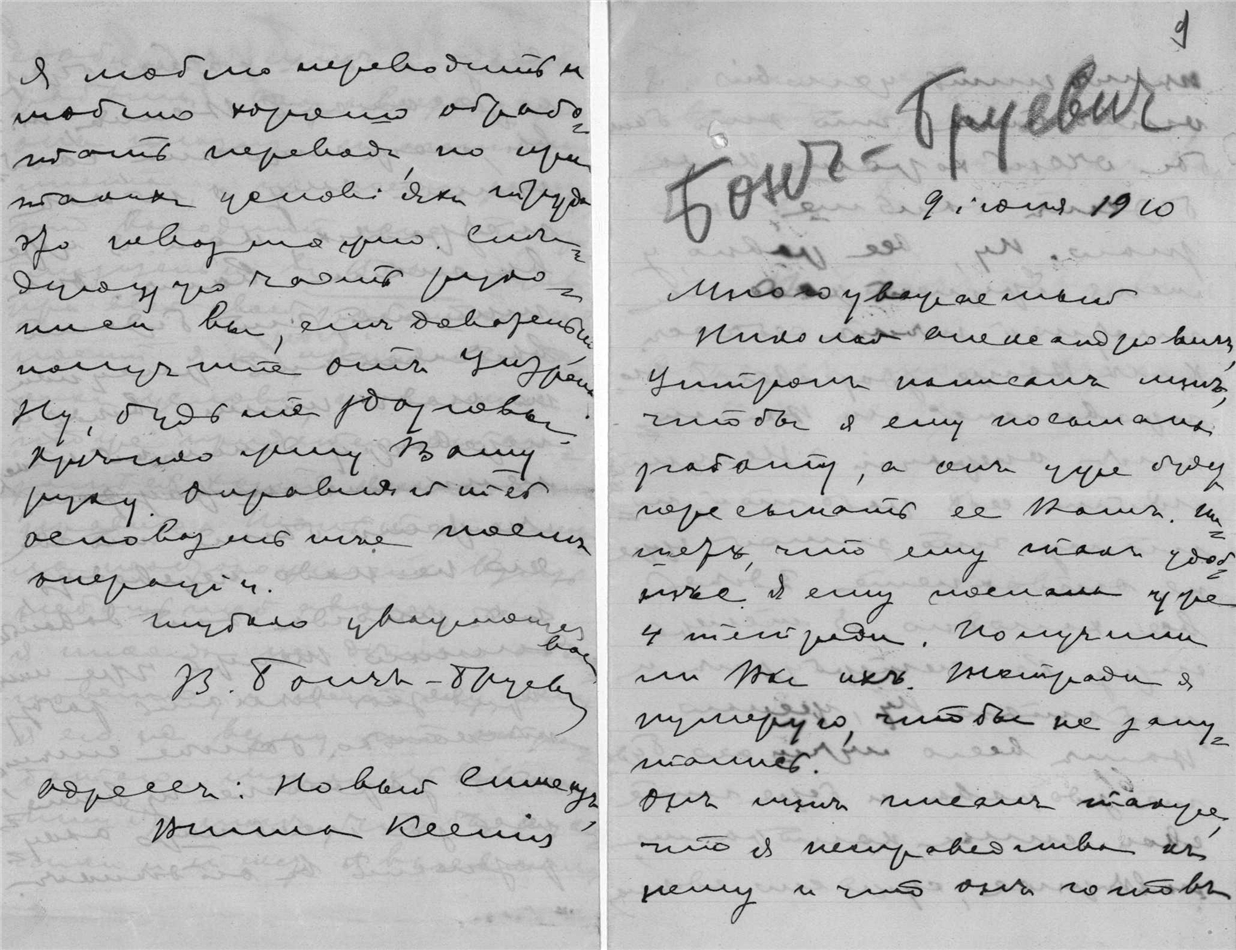 Я люблю переводить и
люблю хорошо обрабо=
тать переводъ, но при
такихъ условіяхъ труда
это невозможно. Слѣ=
дующую часть руко=
писи вы,
получите отъ
Ну, будьте здоровы.
Крѣпко жму Вашу
руку. Оправляйтесь
основательнѣе послѣ
операціи.
Глубоко уважающая
Васъ
В. Бончъ-Бруевич
Адресъ: Новый Симеизъ,
Вилла Ксенія
9
Бонч-Бруевич
9 іюня 1910
Многоуважаемый
Николай Александровичъ,
Цитронъ написалъ мнѣ,
чтобы я ему посылала
работу, а онъ уже будет
пересылать ее Вамъ. Пи=
шетъ, что ему такъ удоб=
нѣе. Я ему послала уже
4 тетради. Получили
ли Вы ихъ. Тетради я
нумерую, чтобы не запу=
тались.
Онъ мнѣ писалъ также,
что я несправедлива къ
нему и что онъ готовъ